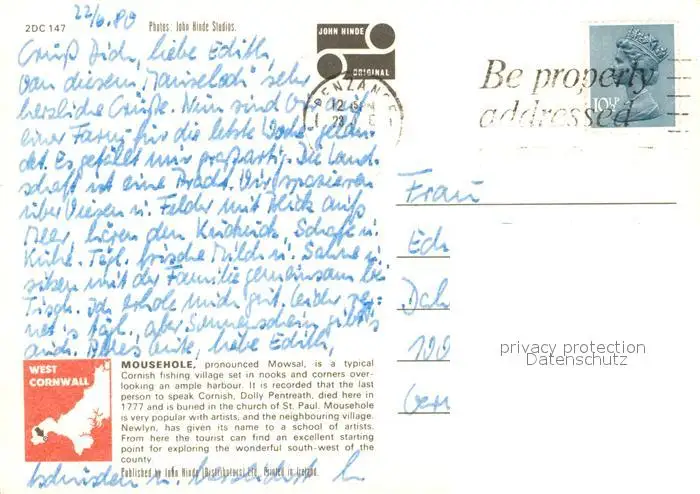 22/6.80
2DC 147
Photos: John Hinde Studios.
Grüß Dich, liebe Edith,
von diesem "Mauseloch" sehr
herzliche Grüße. Nun sind wir auf
einer Farm für die letzte Woche gelan-
det. Es gefällt mir großartig. Die Land-
schaft ist eine Pracht. Wir spazieren
über Wiesen u. Felder mit Blick aufs
Meer, hören den Kuckuck, Schafe u.
Kühe. Tägl. frische Milch u. Sahne u.
sitzen mit der Familie gemeinsam bei
Tisch. Ich erhole mich gut. Leider reg-
net's tägl., aber Sonnenschein gibt's
auch. Alles Gute, liebe Edith,
JOHN HINDE
ORIGINAL
PENZANCE
12
Be properly
addressed
10½P
Frau
Ed
Dah
100
privacy protection
Datenschutz
WEST
CORNWALL
MOUSEHOLE, pronounced Mowsal, is a typical
Cornish fishing village set in nooks and corners over-
looking an ample harbour. It is recorded that the last
person to speak Cornish, Dolly Pentreath, died here in
1777 and is buried in the church of St. Paul. Mousehole
is very popular with artists, and the neighbouring village.
Newlyn, has given its name to a school of artists.
From here the tourist can find an excellent starting
point for exploring the wonderful south-west of the
county
Published by John Hinde (Distributors) Ltd. Printed in Ireland.